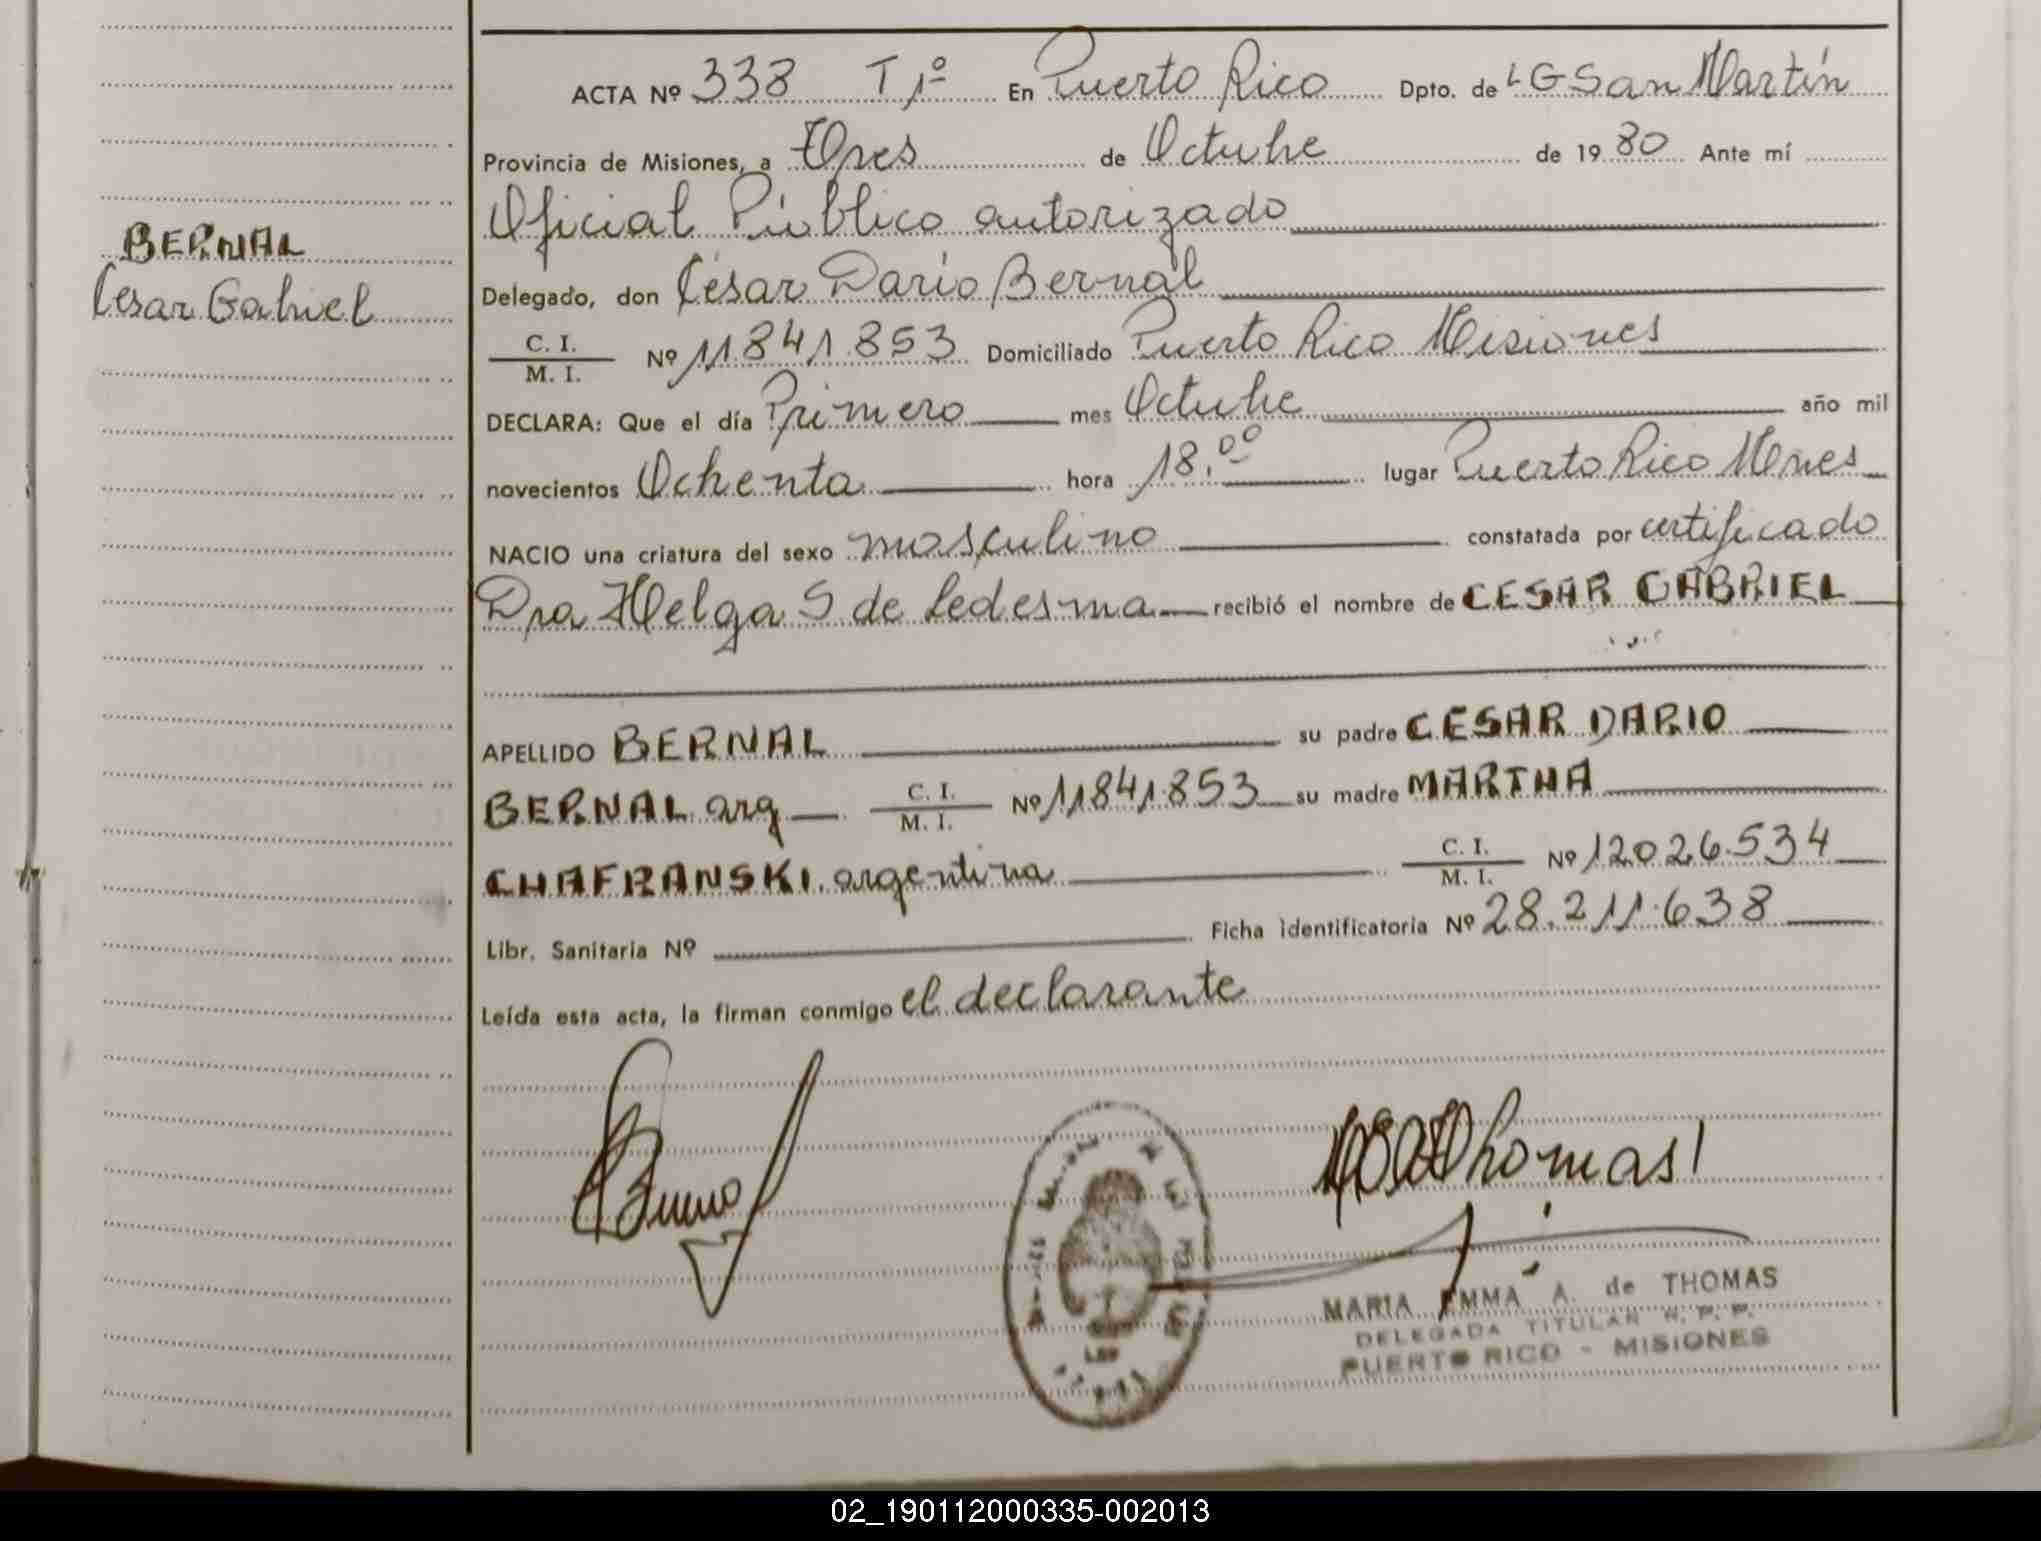 ACTA Nº 338 T 1º En Puerto Rico Dpto. de L G San Martín
Provincia de Misiones, a Tres de Octubre de 1980 Ante mí
Oficial Público autorizado
BERNAL
Cesar Gabriel
Delegado, don César Darío Bernal
C. I.
M. I.
Nº 11841.853 Domiciliado Puerto Rico Misiones
DECLARA: Que el día Primero mes Octubre año mil
novecientos Ochenta hora 18.ºº lugar Puerto Rico Mnes
NACIO una criatura del sexo masculino constatada por certificado
Dra Helga S de Ledesma recibió el nombre de CESAR GABRIEL
APELLIDO BERNAL su padre CESAR DARIO
BERNAL arg C. I. M. I. Nº 11841.853 su madre MARTHA
CHAFRANSKI argentina C. I. M. I. Nº 12026.534
Libr. Sanitaria Nº Ficha identificatoria Nº 28.211.638
Leída esta acta, la firman conmigo el declarante
Thomas
MARIA EMMA A. de THOMAS
DELEGADA TITULAR R. P. P.
PUERTO RICO - MISIONES
02_190112000335-002013